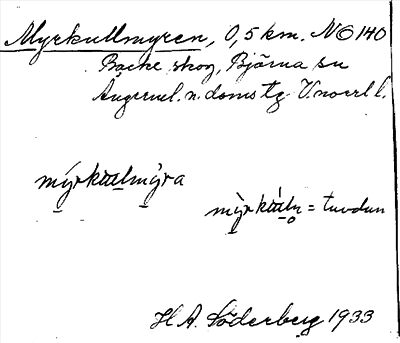 Myrkullmyren, 0,5 km. NO 140
Backe skog, Björna sn
Ångermel. n. doms tg V.norrl l.
mýrku̲lmỳ̲ra
mỳ̲rkúln̥ = tuvdun
H A. Söderberg 1933